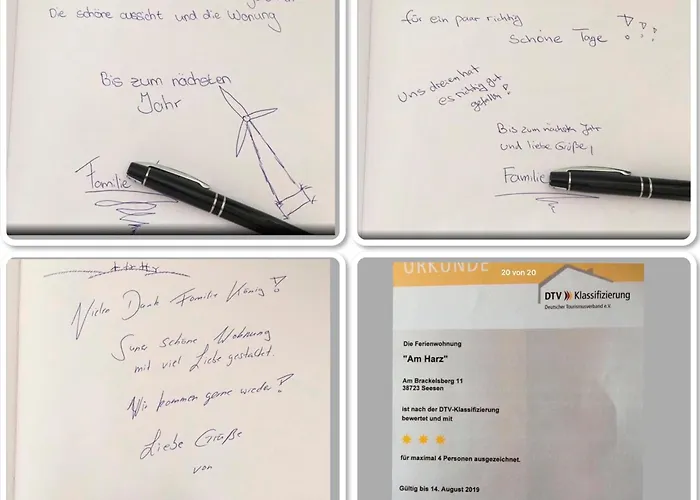 Die schöne aussicht und die Wonung
Bis zum nächsten
Jahr
Familie
für ein paar richtig
schöne Tage
Uns dreien hat
es richtig gut
gefallen!
Bis zum nächsten Jahr
und liebe Grüße,
Familie
Vielen Dank Familie König!
Super schöne Wohnung
mit viel Liebe gestaltet.
Wir kommen gerne wieder!
Liebe Grüße
von
URKUNDE
20 von 20
DTV Klassifizierung
Deutscher Tourismusverband e.V.
Die Ferienwohnung
"Am Harz"
Am Brackelsberg 11
38723 Seesen
ist nach der DTV-Klassifizierung
bewertet und mit
für maximal 4 Personen ausgezeichnet.
Gültig bis 14. August 2019